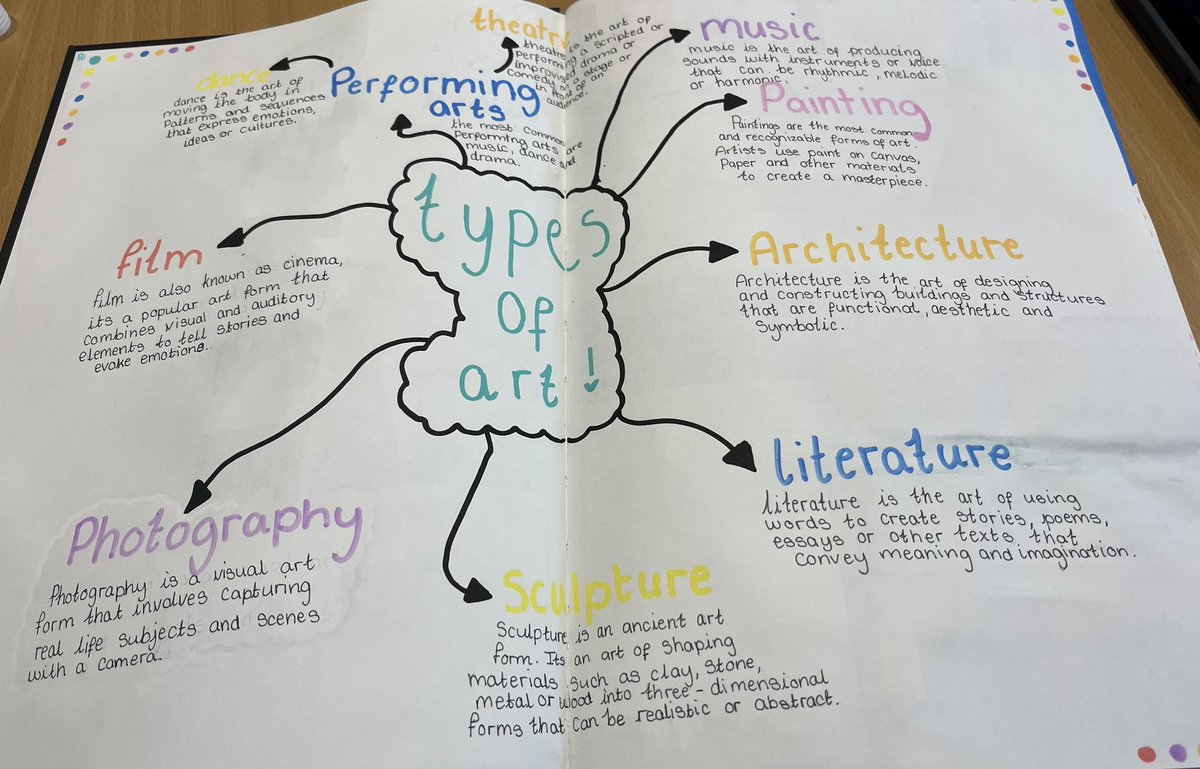 types
of
art!
Performing
arts
the most common
performing arts are
music, dance and
drama.
dance
dance is the art of
moving the body in
patterns and sequences
that express emotions,
ideas or cultures.
theatre
is the art of
performing a scripted or
improvised drama or
comedy on a stage or
in front of an
audience.
music
music is the art of producing
sounds with instruments or voice
that can be rhythmic, melodic
or harmonic.
Painting
Paintings are the most common
and recognizable forms of art.
Artists use paint on canvas,
Paper and other materials
to create a masterpiece.
Architecture
Architecture is the art of designing
and constructing buildings and structures
that are functional, aesthetic and
Symbolic.
literature
literature is the art of using
words to create stories, poems,
essays or other texts that
convey meaning and imagination.
Sculpture
Sculpture is an ancient art
form. Its an art of shaping
materials such as clay, stone,
metal or wood into three-dimensional
forms that can be realistic or abstract.
Photography
Photography is a visual art
form that involves capturing
real life subjects and scenes
with a camera.
film
film is also known as cinema,
its a popular art form that
combines visual and auditory
elements to tell stories and
evoke emotions.